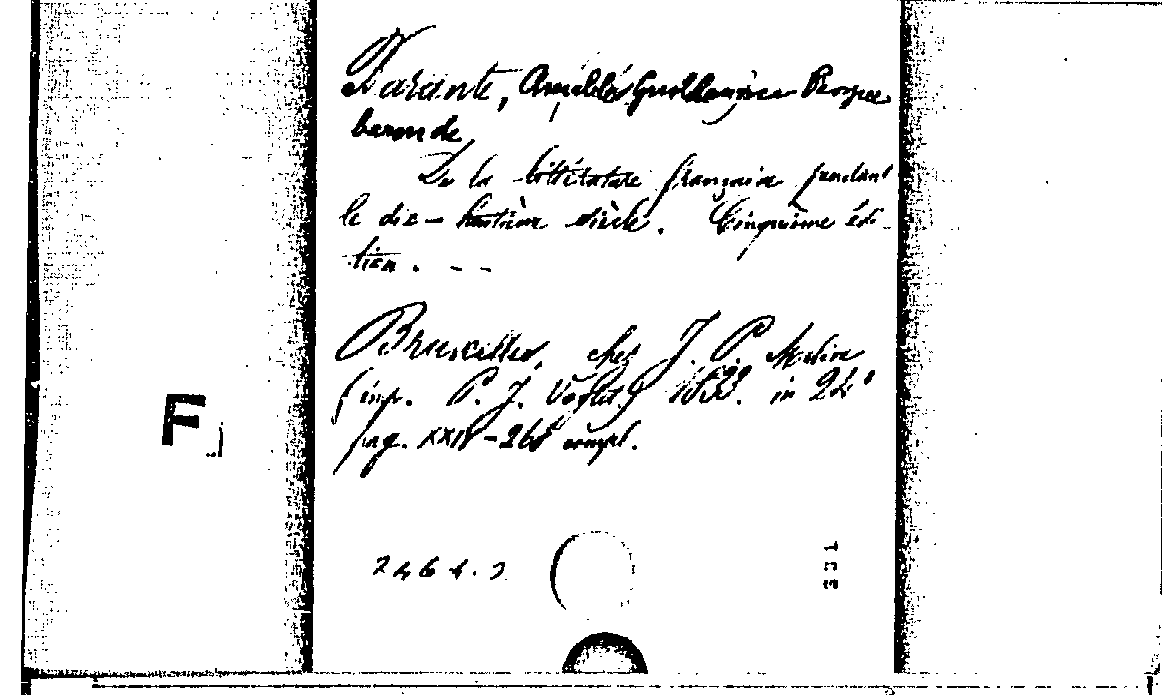 Barante, Amable Guillaume Prosper
baron de
De la littérature française pendant
le dix-huitième siècle. Cinquième édi-
tion. ---
Bruxelles, chez J. P. Meline
(imp. P. J. Voglet) 1833. in 24°
pag. XXIV-268 compl.
F